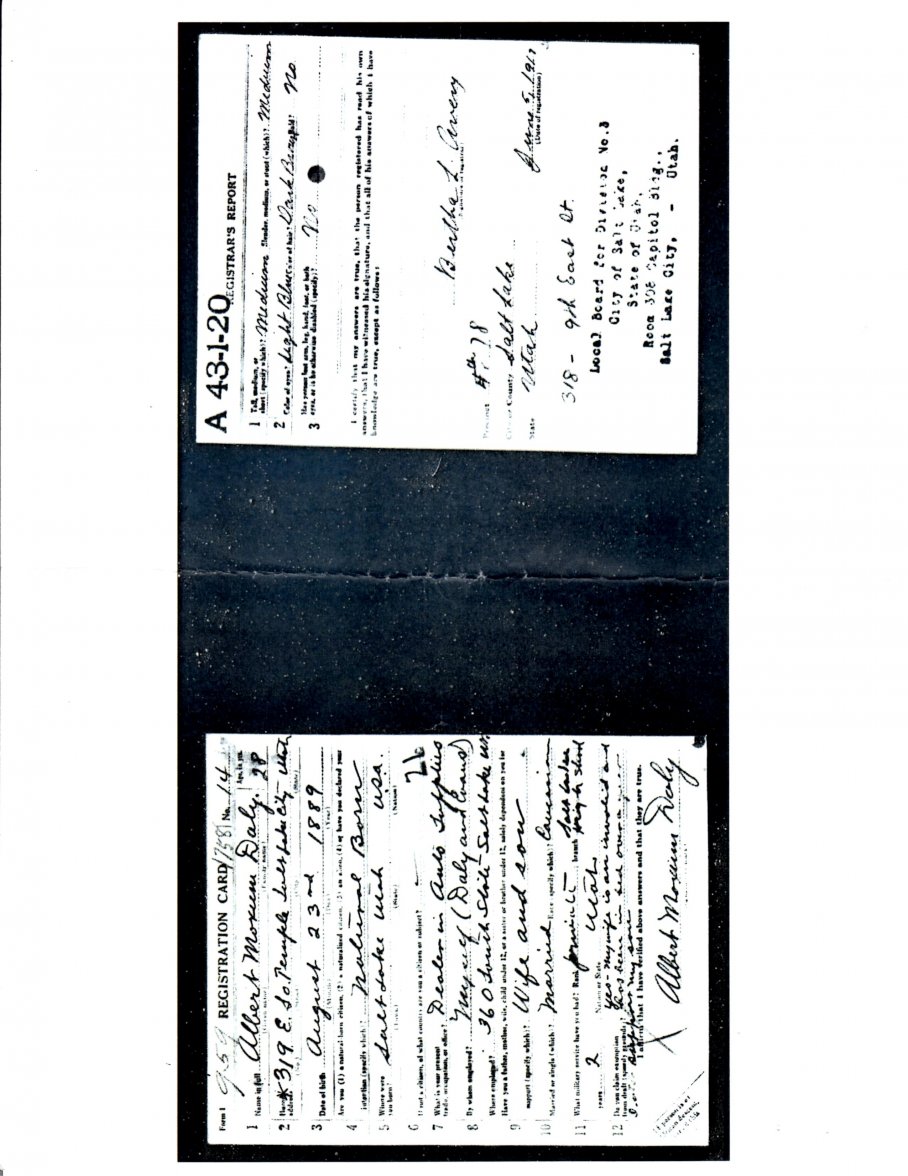 Form 1 959 REGISTRATION CARD 1758 No. 14
1 Name in full Albert Moxum Daly. Age, in yrs. 28
(Family name)
2 Home address 329 E. So. Temple Salt Lake City Utah
(No.) (State)
3 Date of birth August 23rd 1889
(Month) (Day) (Year)
Are you (1) a natural born citizen, (2) a naturalized citizen, (3) an alien, (4) or have you declared your
4 intention (specify which)? Natural Born
5 Where were you born? Salt Lake Utah USA.
(Town) (State) (Nation)
6 If not a citizen, of what country are you a citizen or subject?
7 What is your present trade, occupation, or office? Dealer in Auto Supplies 26
8 By whom employed? Myself (Daly and Evans)
Where employed? 360 South State - Salt Lake Ut.
Have you a father, mother, wife, child under 12, or a sister or brother under 12, solely dependent on you for
9 support (specify which)? Wife and son
10 Married or single (which)? Married Race (specify which)? Caucasian
11 What military service have you had? Rank private branch Salt Lake High School
years 2 Nation or State Utah
12 Do you claim exemption from draft (specify grounds)? Yes - My wife is an invalid and
has been in bed over a year
support my son
I affirm that I have verified above answers and that they are true.
Albert Moxum Daly
A 43-1-20 REGISTRAR'S REPORT
1 Tall, medium, or short (specify which)? Medium Slender, medium, or stout (which)? Medium
2 Color of eyes? Light Blue Color of hair? Dark Brown Bald? No
3 Has person lost arm, leg, hand, foot, or both eyes, or is he otherwise disabled (specify)? No
I certify that my answers are true, that the person registered has read his own
answers, that I have witnessed his signature, and that all of his answers of which I have
knowledge are true, except as follows:
Bertha L. Avery
Precinct 4th 78
City or County Salt Lake
State Utah June 5, 1917
(Date of registration)
318 - 9th East St.
Local Board for Division No. 3
City of Salt Lake,
State of Utah.
Room 308 Capitol Bldg.,
Salt Lake City, - Utah.